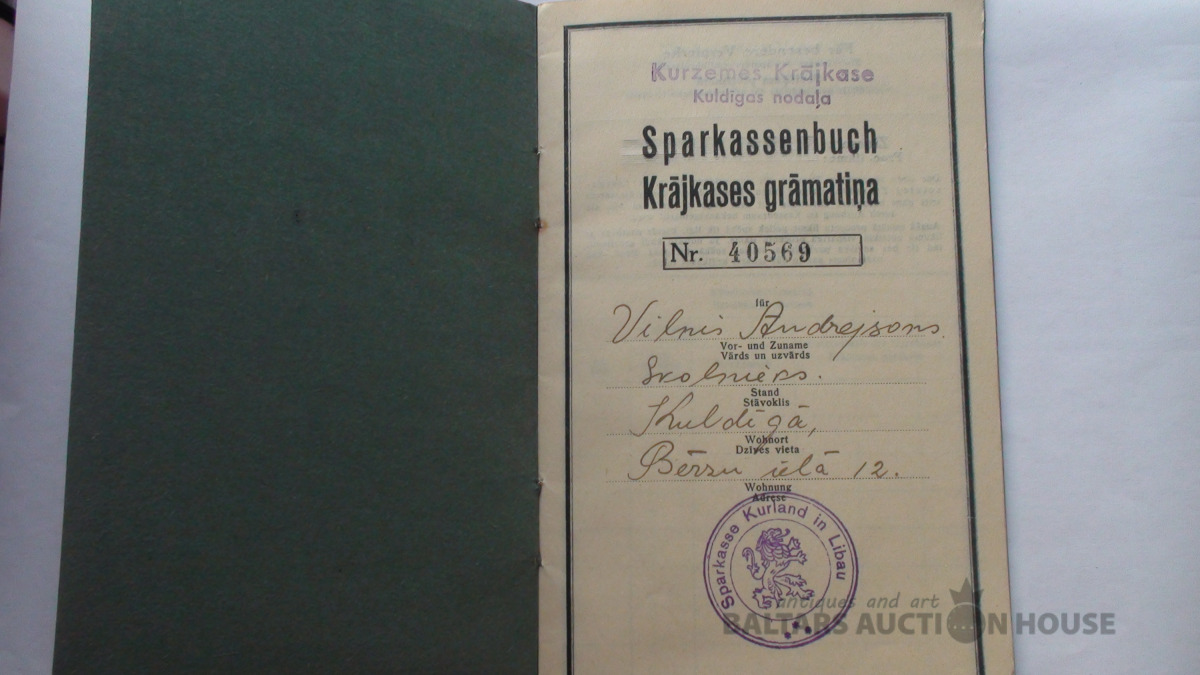 Kurzemes Krājkase
Kuldīgas nodaļa
Sparkassenbuch
Krājkases grāmatiņa
Nr. 40569
für
Vilnis Andrejsons
Vor- und Zuname
Vārds un uzvārds
Skolnieks.
Stand
Stāvoklis
Kuldīgā,
Wohnort
Dzīves vieta
Bērzu ielā 12.
Wohnung
Adrese
Sparkasse Kurland in Libau
antiques and art
BALTARS AUCTION HOUSE